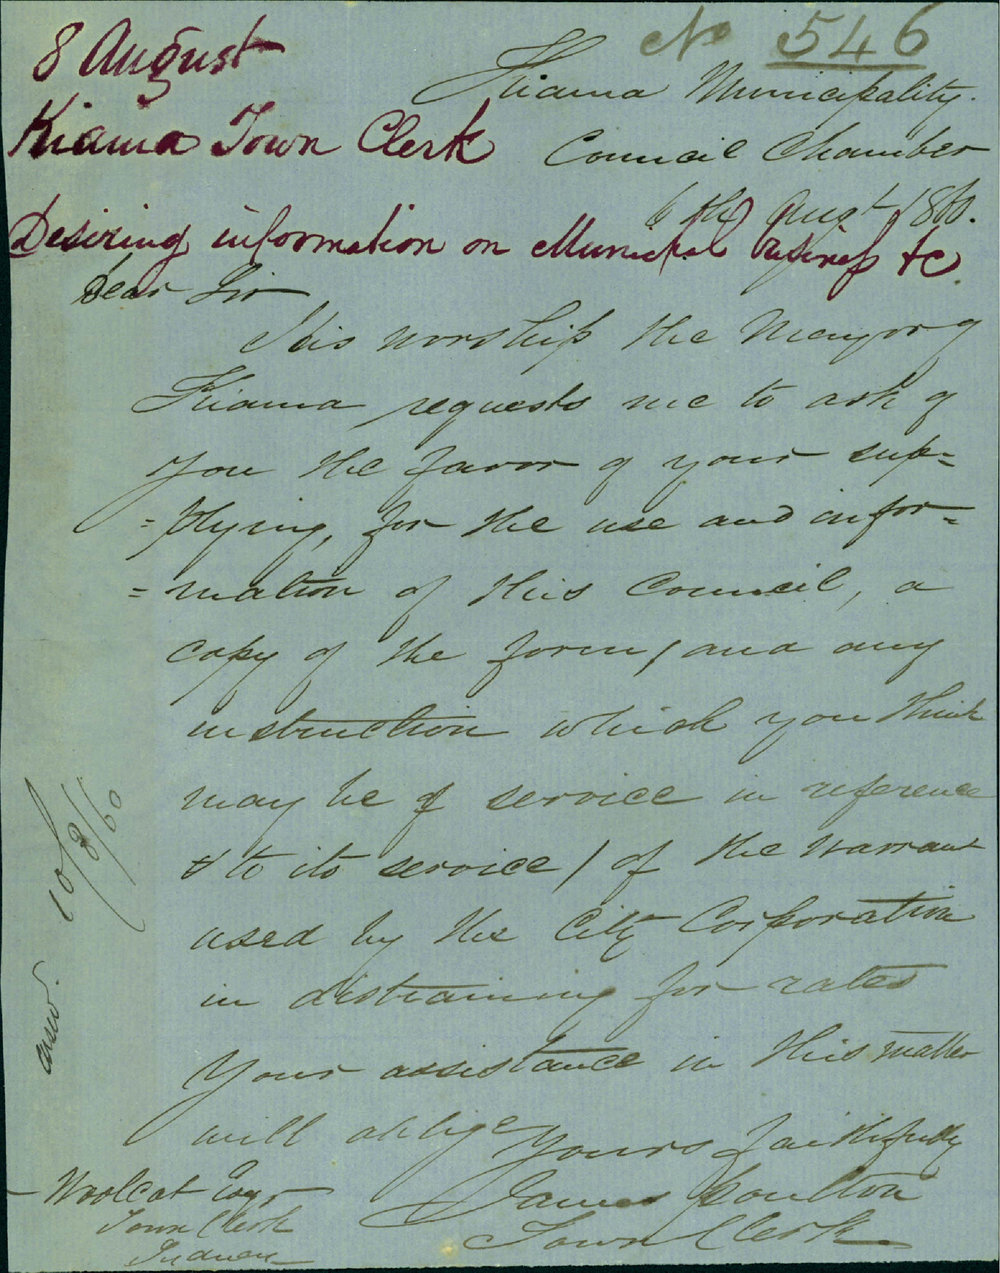 No 546
8 August
Kiama Town Clerk
Desiring information on Municipal business &c.
Kiama Municipality.
Council Chamber
6th Augt 1860.
Dear Sir
His worship the Mayor of
Kiama requests me to ask of
you the favor of your sup=
=plying, for the use and infor=
=mation of this Council, a
copy of the form / and any
instruction which you think
may be of service in reference
to its service / of the warrant
used by the City Corporation
in distraining for rates
Your assistance in this matter
will oblige
Yours faithfully
James Poulton
Town Clerk
Woolcot Esqr
Town Clerk
answ. 10/8/60